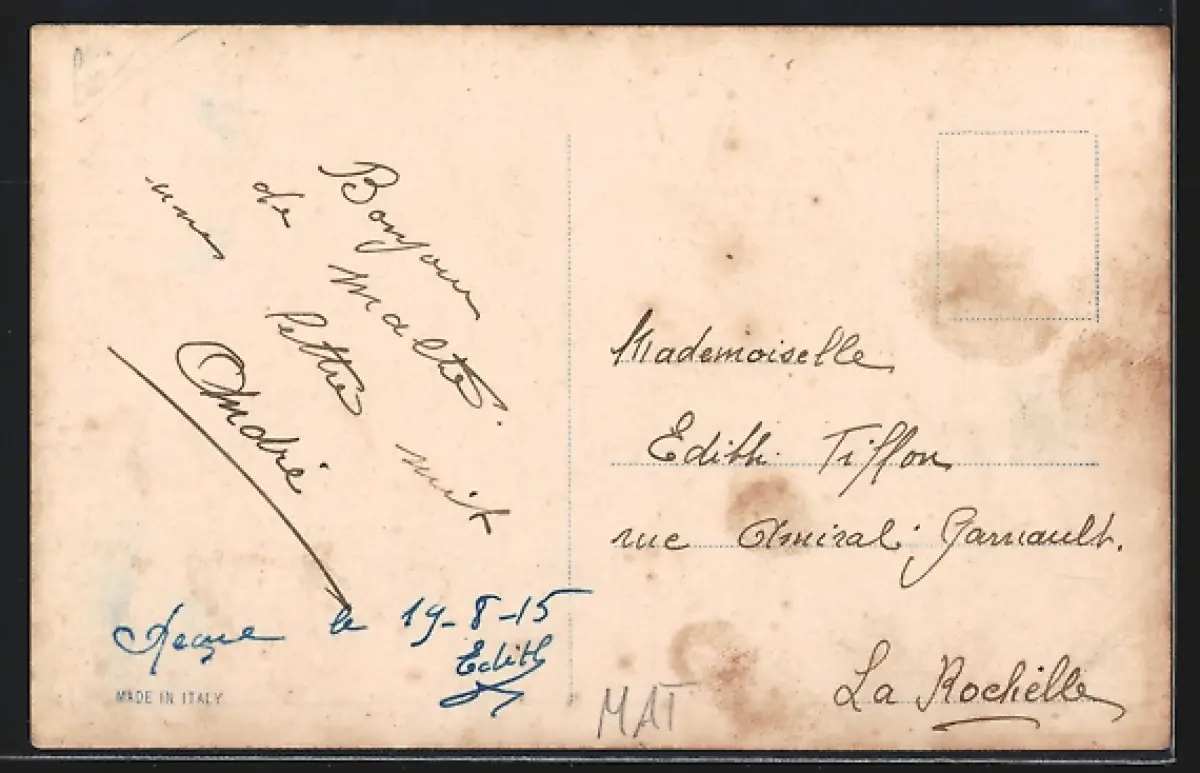 Bonjour
de Malte.
une petite nuit
André
Reçue le 19-8-15
Edith
MADE IN ITALY
MAT
Mademoiselle
Edith Tiffon
rue Amiral Garnault.
La Rochelle